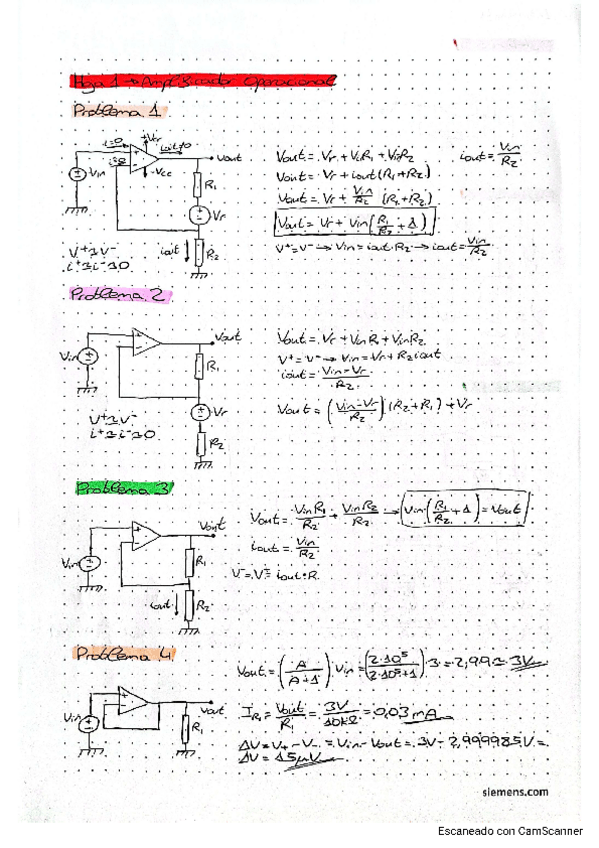 Hoja 1 → Amplificador Operacional
Problema 1
i=0
+Vcc
iout≠0
Vout
Vin
i=0
-Vcc
R1
Vr
iout
R2
V+=V-
i+=i-=0
Vout = Vr + VR1 + VR2
iout = Vin/R2
Vout = Vr + iout(R1+R2)
Vout = Vr + Vin/R2 (R1+R2)
Vout = Vr + Vin(R1/R2 + 1)
V+=V- → Vin = iout·R2 → iout = Vin/R2
Problema 2
Vout
Vin
R1
Vr
R2
V+=V-
i+=i-=0
Vout = Vr + VinR1 + VinR2
V+ = V- → Vin = Vr + R2 iout
iout = Vin-Vr/R2
Vout = (Vin-Vr/R2)(R2+R1) + Vr
Problema 3
Vout
Vin
R1
iout
R2
Vout = VinR1/R2 + VinR2/R2 → Vin(R1/R2 + 1) = Vout
iout = Vin/R2
V- = V+ = iout·R
Problema 4
Vout
Vin
R1
Vout = (A/A+1)·Vin = (2·10^5/2·10^5+1)·3 = 2,99 ≈ 3V
IR1 = Vout/R1 = 3V/10kΩ = 0,03 mA
ΔV = V+ - V- = Vin - Vout = 3V - 2,999985V =
ΔV = 15μV
siemens.com
Escaneado con CamScanner